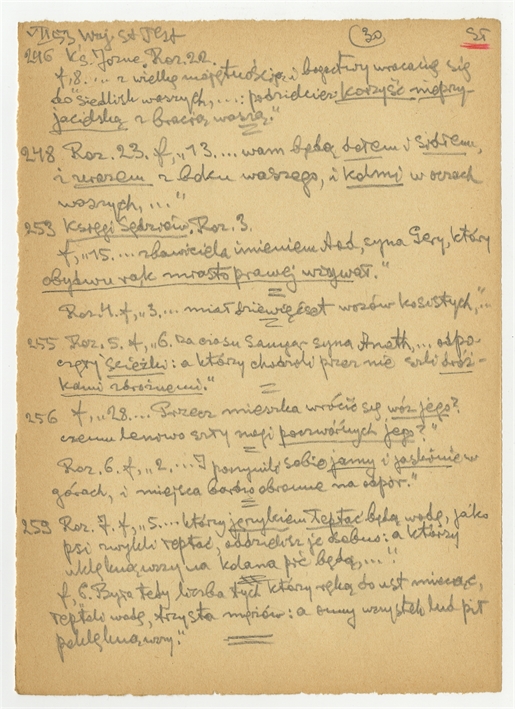 VII 53 Wuj. St Test (30) ST
246 Ks. Jozue. Roz. 22.
f, 8. ... z wielką majętnością i bogactwy wracacie się
do siedlisk waszych, ...: podzielcież korzyść nieprzy-
jacielską z bracią waszą."
248 Roz. 23. f, "13. ... wam będą dołem i sidłem,
i urazem z boku waszego, i kolmi w oczach
waszych, ..."
253 Księgi Sędziów. Roz. 3.
f, "15. ... zbawiciela imieniem Aod, syna Gery, który
obydwu rąk miasto prawej używał."
Roz. 4. f, "3. ... miał dziewięćset wozów kosistych, "...
255 Roz. 5. f, "6. Za czasu Samgar syna Anath, ... odpo-
częły ścieżki: a którzy chodzili przez nie szli dróż-
kami zdrożnemi."
256 f, "28. ... Przecz mieszka wrócić się wóz jego?
czemu leniwo szły nogi poczwórnych jego?"
Roz. 6. f, "2. ... I poczynili sobie jamy i jaskinie w
górach, i miejsca bardzo obronne na odpór."
259 Roz. 7. f, "5. ... którzy językiem łeptać będą wodę, jako
psi zwykli łeptać, oddzielisz je osobno: a którzy
uklęknąwszy na kolana pić będą, ..."
f, 6. Była tedy liczba tych którzy ręką do ust miecąc,
łeptali wodę, trzysta mężów: a inny wszystek lud pił
poklęknąwszy."